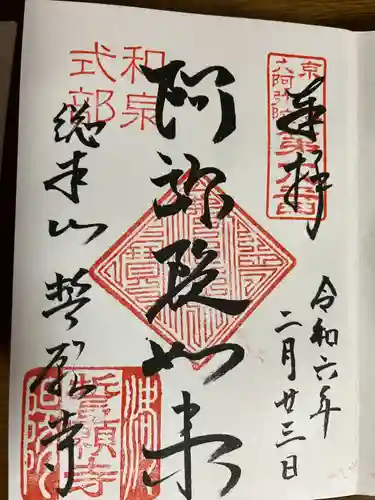 奉拝
令和六年
二月廿三日
阿弥陀如来
総本山 誓願寺
和泉
式部
京
六阿弥陀
誓願寺